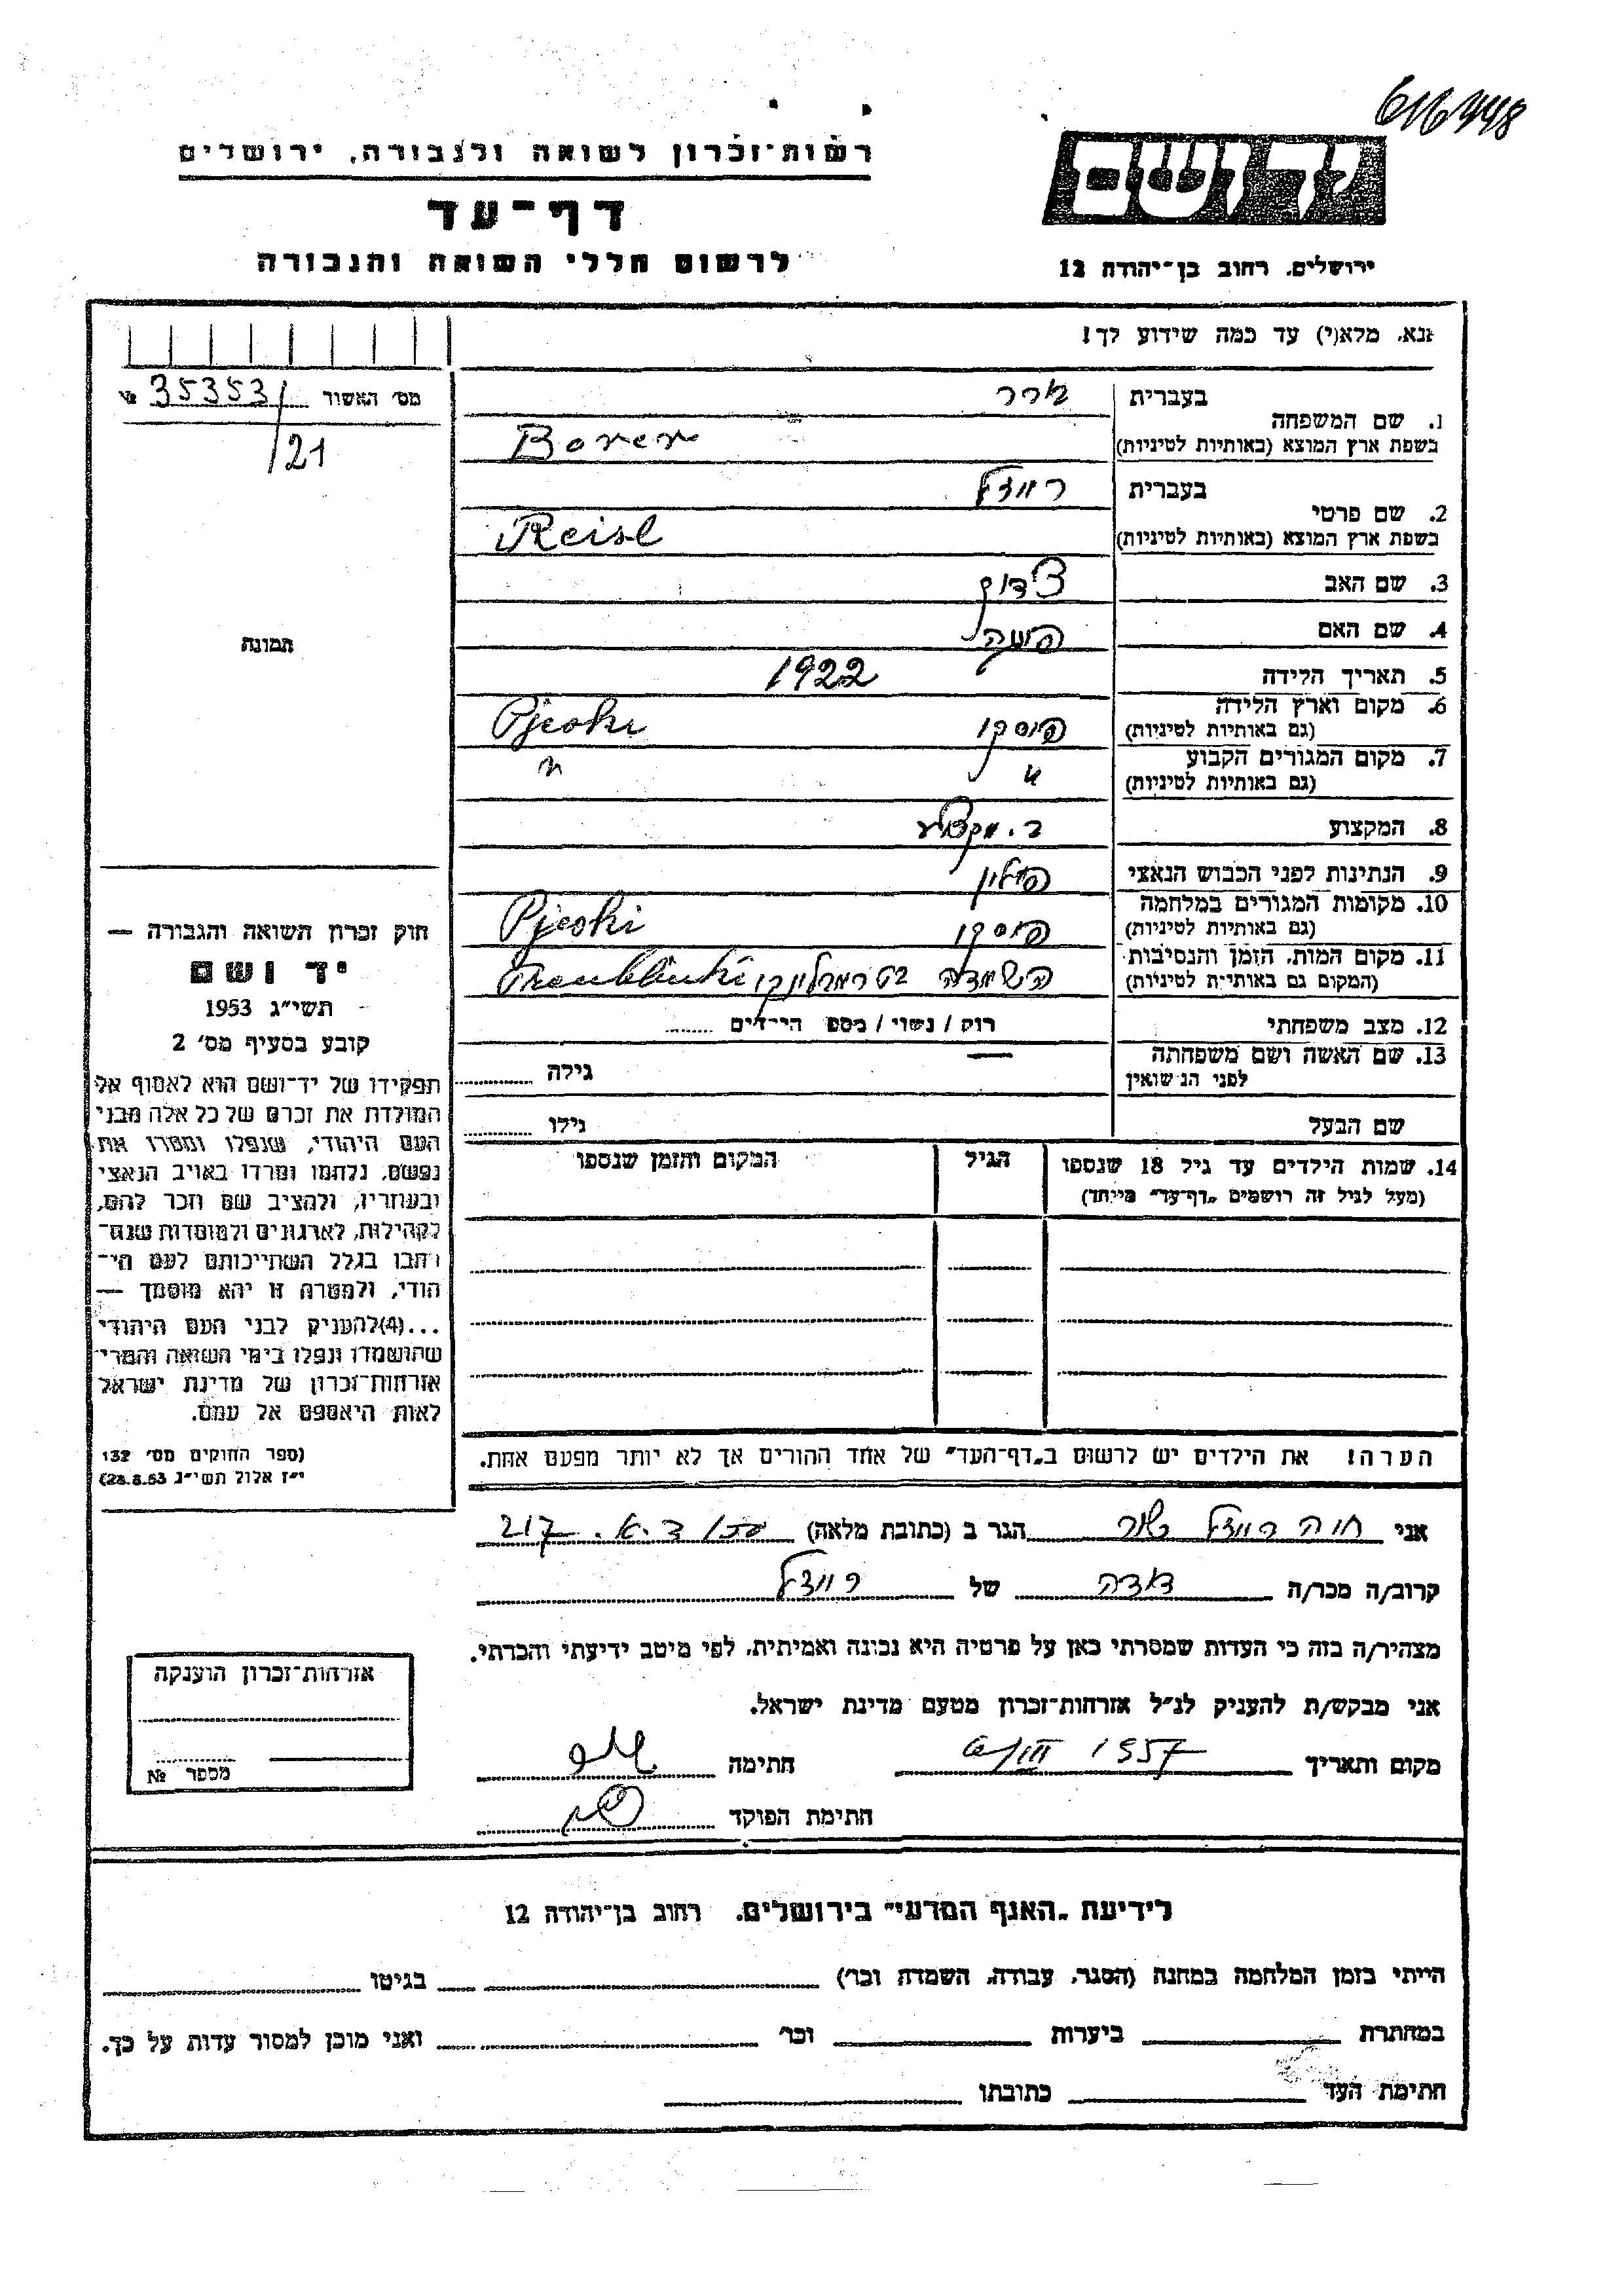 616448
רשות־זכרון לשואה ולגבורה, ירושלים
יד ושם
דף־עד
לרשום חללי השואה והגבורה
ירושלים, רחוב בן־יהודה 12
נא, מלא(י) עד כמה שידוע לך!
מס׳ האשור 35353/ №
/21
1. שם המשפחה
בעברית בורר
בשפת ארץ המוצא (באותיות לטיניות) Borer
2. שם פרטי
בעברית רייזל
בשפת ארץ המוצא (באותיות לטיניות) Reisl
3. שם האב צדוק
4. שם האם
תמונה
5. תאריך הלידה 1922
6. מקום וארץ הלידה
(גם באותיות לטיניות) פיוסקי Pjeski
7. מקום המגורים הקבוע
(גם באותיות לטיניות) " "
8. המקצוע ב. מקצוע
9. הנתינות לפני הכבוש הנאצי פולין
10. מקומות המגורים במלחמה
(גם באותיות לטיניות) פיוסקי Pjeski
11. מקום המות, הזמן והנסיבות
(המקום גם באותיות לטיניות) השמדה בטרמבלינקי
12. מצב משפחתי רוק / נשוי / מספ הילדים
13. שם האשה ושם משפחתה
לפני הנישואין — גילה
שם הבעל גילו
14. שמות הילדים עד גיל 18 שנספו הגיל המקום והזמן שנספו
(מעל לגיל זה רושמים „דף־עד” מייחד)
חוק זכרון השואה והגבורה —
יד ושם
תשי״ג 1953
קובע בסעיף מס׳ 2
תפקידו של יד־ושם הוא לאסוף אל
המולדת את זכרם של כל אלה מבני
העם היהודי, שנפלו ומסרו את
נפשם, נלחמו ומרדו באויב הנאצי
ובעוזריו, ולהציב שם וזכר להם,
לקהילות, לארגונים ולמוסדות שנח־
רבו בגלל השתייכותם לעם הי־
הודי, ולמטרה זו יהא מוסמך —
...(4)להעניק לבני העם היהודי
שהושמדו ונפלו בימי השואה והמרי־
אזרחות־זכרון של מדינת ישראל
לאות היאספם אל עמם.
(ספר החוקים מס׳ 132
י״ז אלול תשי״ג 28.8.53)
הערה! את הילדים יש לרשום ב„דף־העד” של אחד ההורים אך לא יותר מפעם אחת.
אני חיה רייזל הגר ב (כתובת מלאה) ד.א. 217
קרוב/ה מכר/ה דודה של רייזל
מצהיר/ה בזה כי העדות שמסרתי כאן על פרטיה היא נכונה ואמיתית, לפי מיטב ידיעתי והכרתי.
אני מבקש/ת להעניק לנ״ל אזרחות־זכרון מטעם מדינת ישראל.
מקום ותאריך 1957 חתימה
חתימת הפוקד
אזרחות־זכרון הוענקה
מספר №
לידיעת „האגף המדעי” בירושלים, רחוב בן־יהודה 12
הייתי בזמן המלחמה במחנה (הסגר, עבודה, השמדה וכו׳) בגיטו
במחתרת ביערות וכו׳ ואני מוכן למסור עדות על כך.
חתימת העד כתובתו